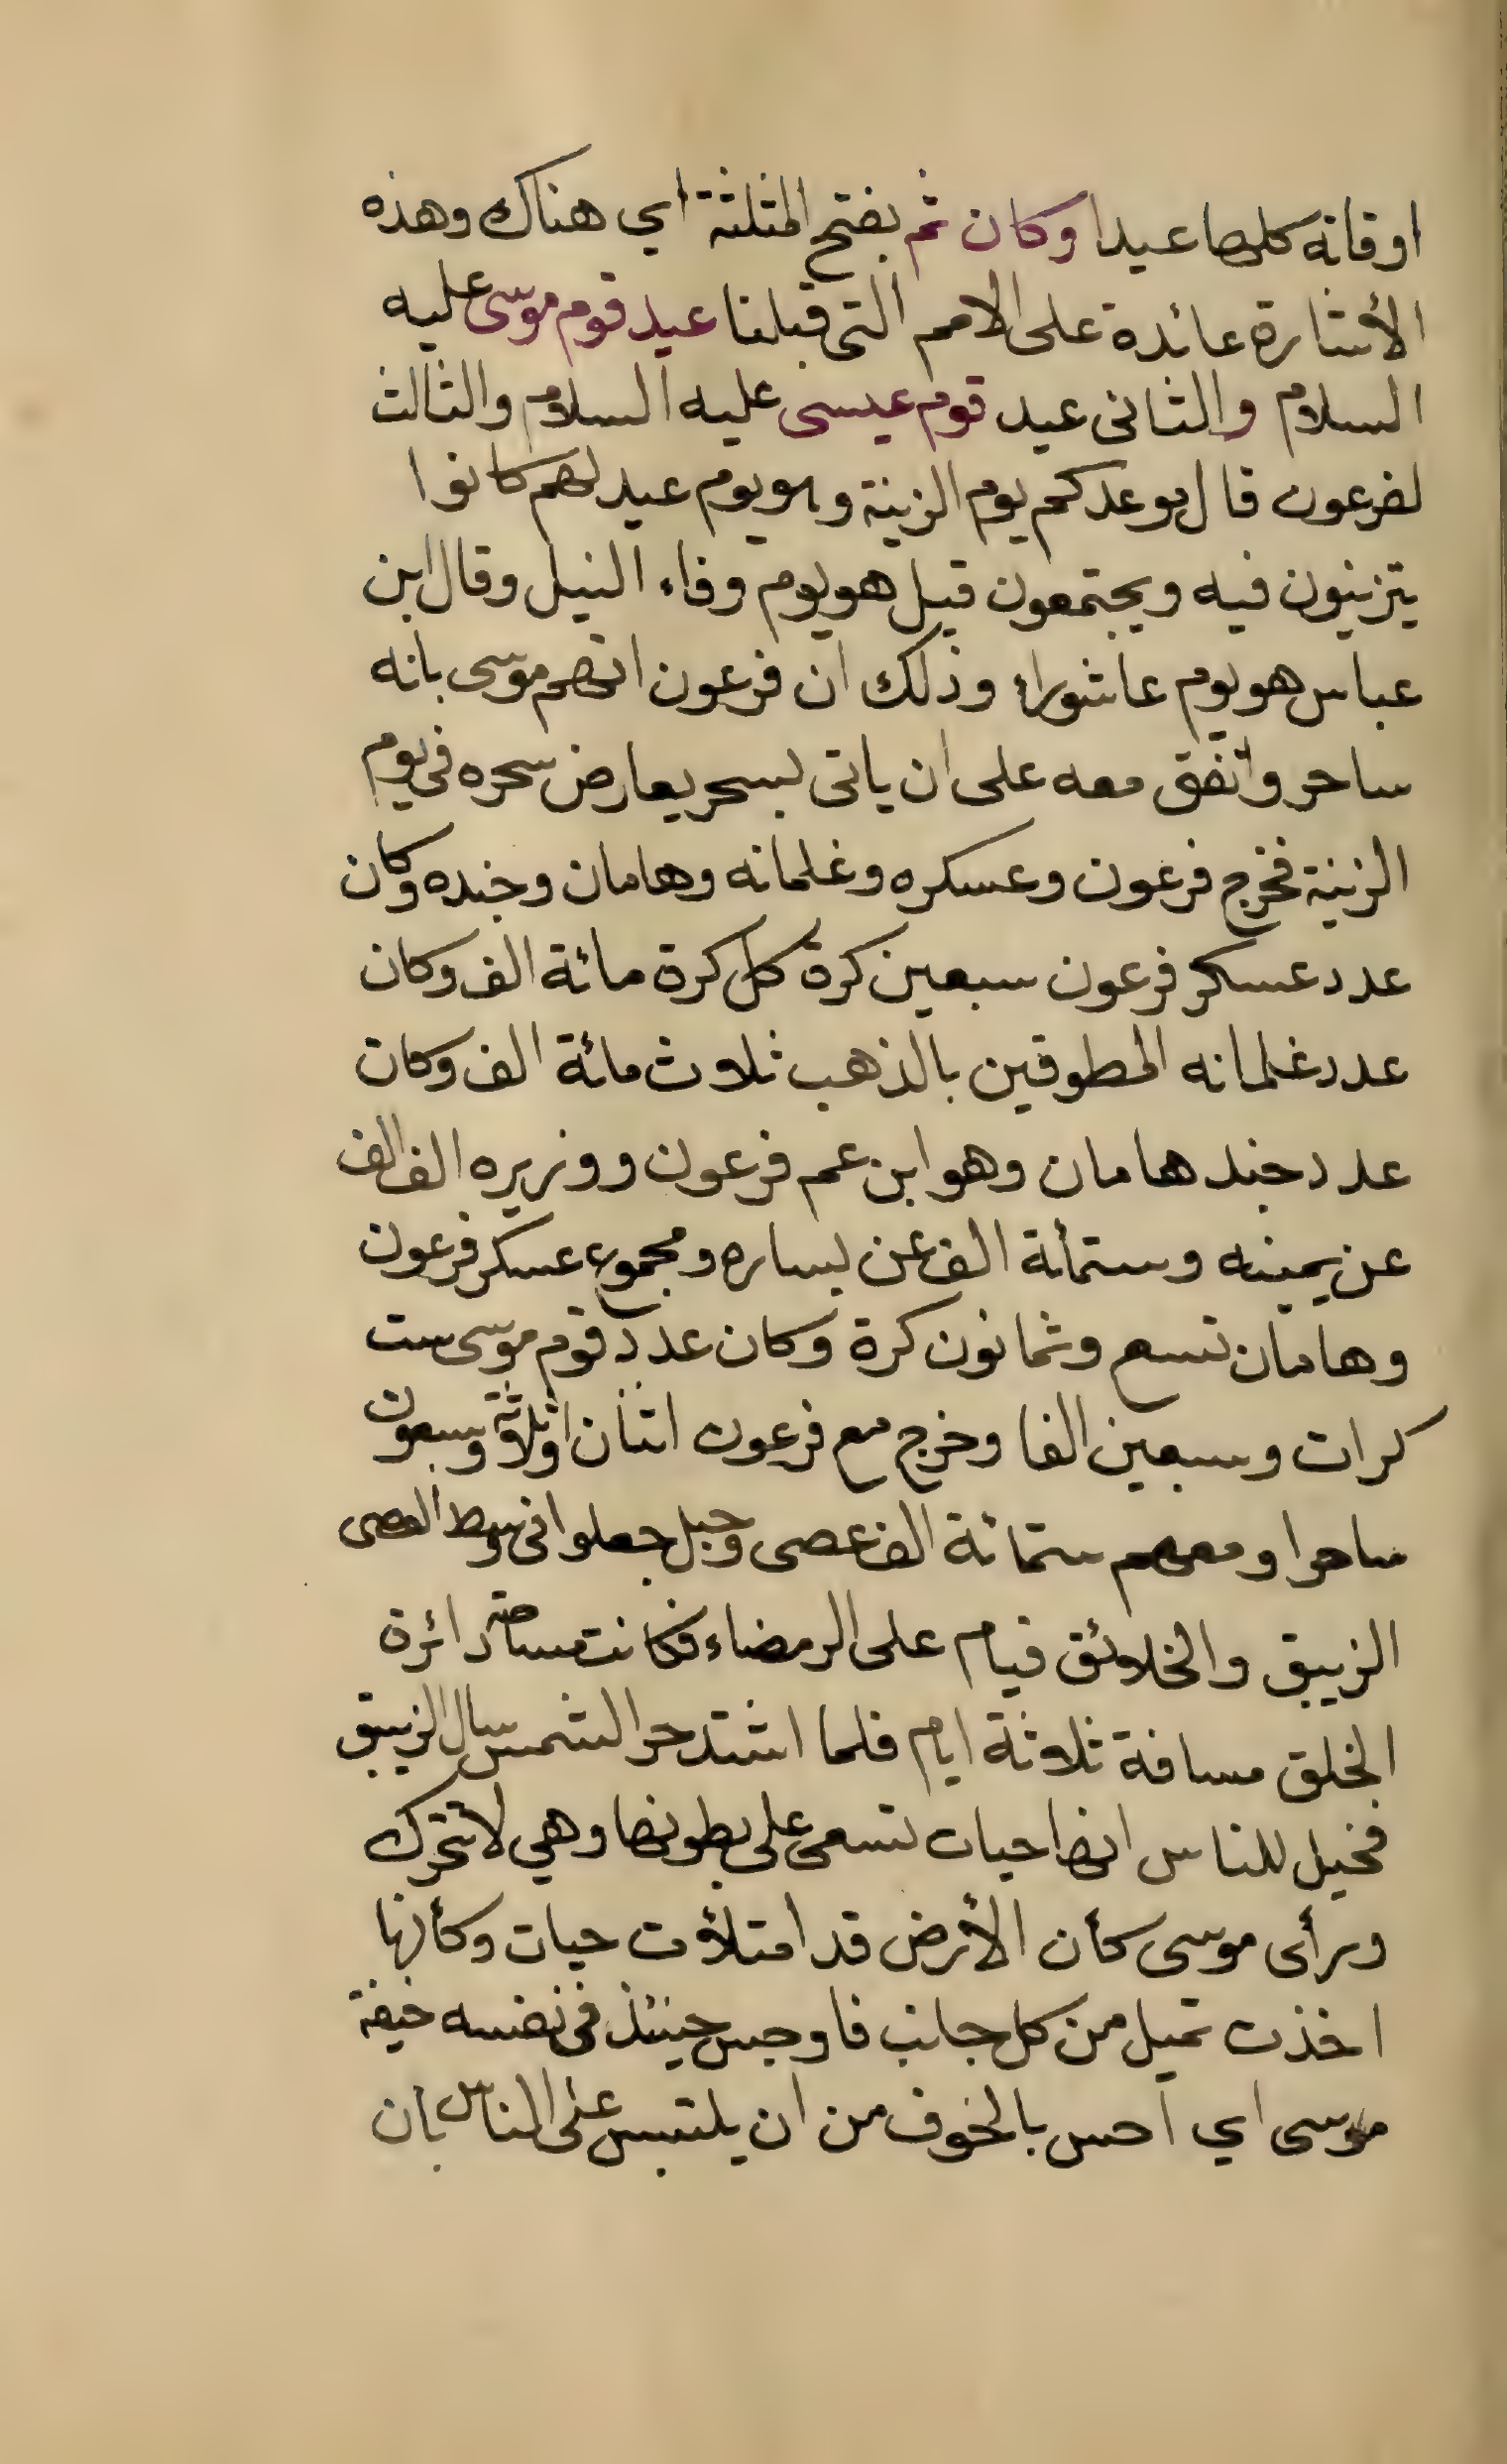 اوقاته كلها عيدا وكان ثم بفتح المثلثة اي هناك وهذه
الأشارة عائدة على الامم التى قبلنا عيد قوم موسى عليه
السلام والثانى عيد قوم عيسى عليه السلام والثالث
لفرعون قال موعدكم يوم الزينة وهو يوم عيد لهم كانوا
يتزينون فيه ويجتمعون قيل هو يوم وفاء النيل وقال ابن
عباس هو يوم عاشوراء وذلك ان فرعون اتهم موسى بانه
ساحر واتفق معه على ان ياتى بسحر يعارض سحره فى يوم
الزينة فخرج فرعون وعسكره وغلمانه وهامان وجنده وكان
عدد عسكر فرعون سبعين كرة كل كرة مائة الف وكان
عدد غلمانه المطوقين بالذهب ثلاث مائة الف وكان
عدد جند هامان وهو ابن عم فرعون ووزيره الف الف
عن يمينه وستمأئة الف عن يساره ومجموع عسكر فرعون
وهامان تسع وثمانون كرة وكان عدد قوم موسى ست
كرات وسبعين الفا وخرج مع فرعون اثنان او ثلاثة وسبعون
ساحرا ومعهم ستمائة الف عصى وحبل جعلوا فى وسط العصى
الزيبق والخلائق قيام على الرمضاء فكانت مساحة دائرة
الخلق مسافة ثلاثة ايام فلما اشتد حر الشمس سال الزيبق
فخيل للناس انها حيات تسعى على بطونها وهي لا تتحرك
ورأى موسى كأن الأرض قد امتلأت حيات وكأنها
اخذت تميل من كل جانب فاوجس حينئذ فى نفسه خيفة
موسى اي احس بالخوف من ان يلتبس على الناس بان